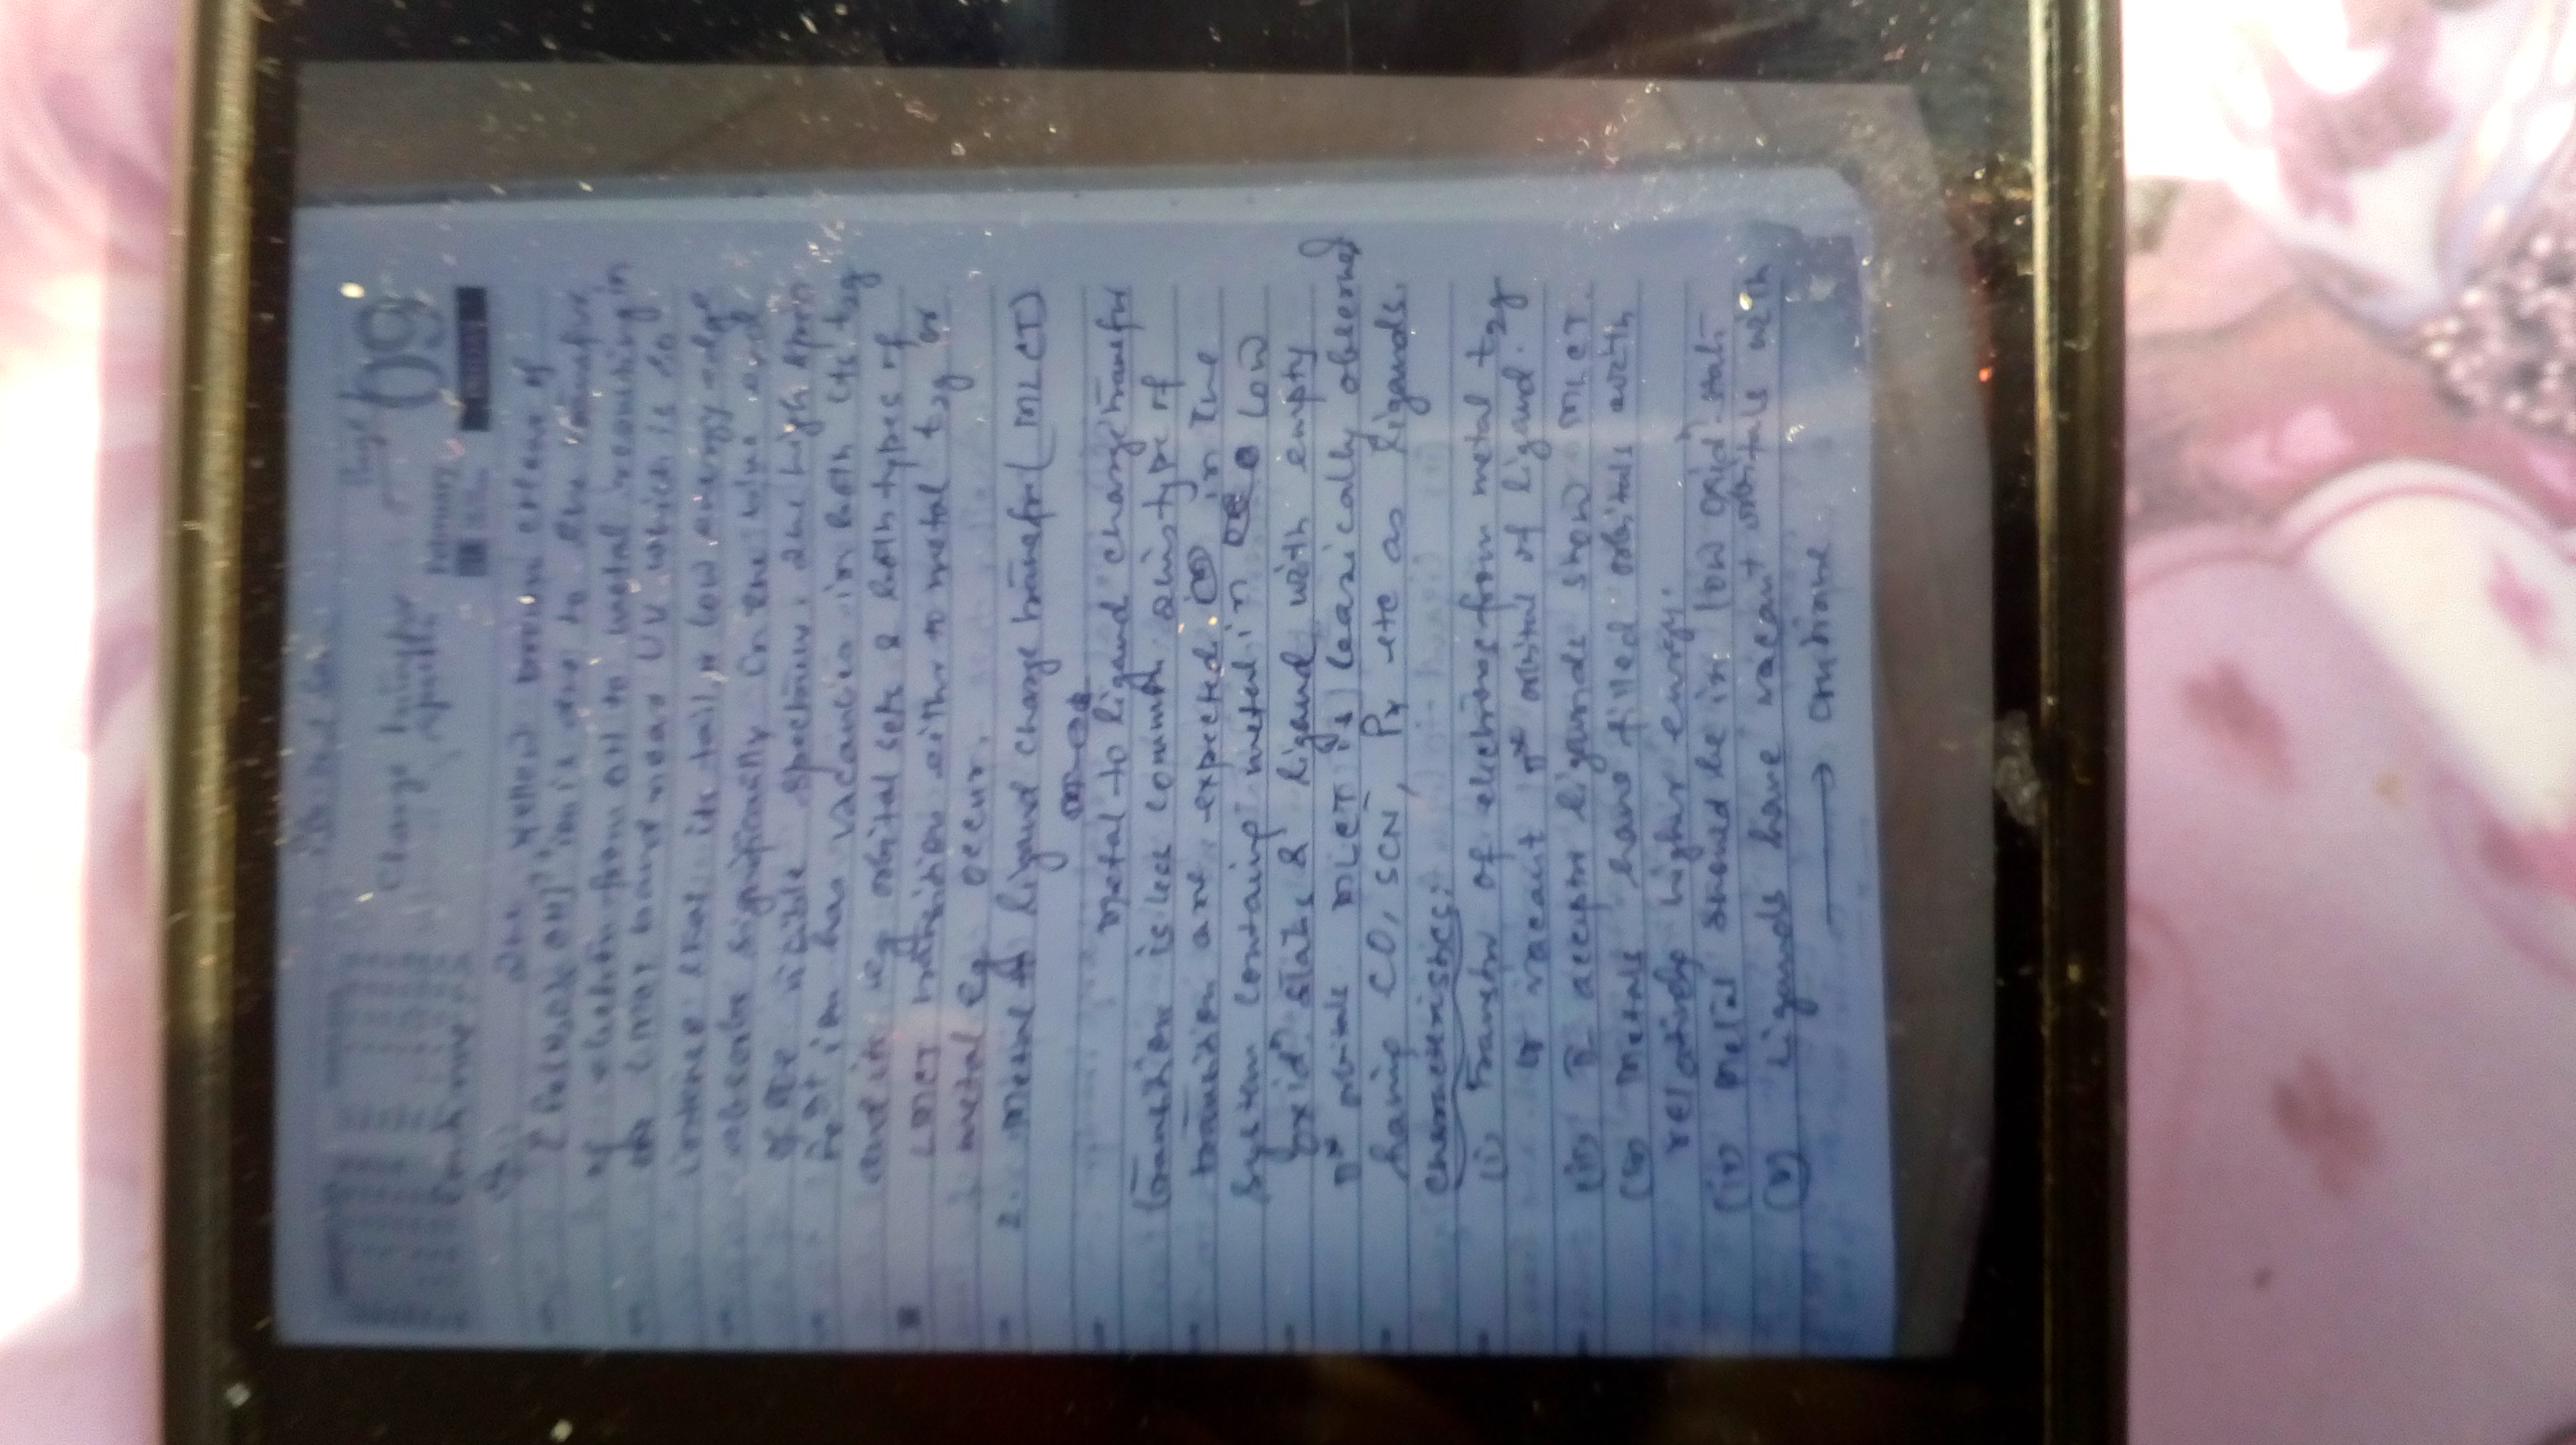 Page
09
Charge transfer spectra
February
The yellow brown colour of
[Fe(H2O)5OH]2+ ion is due to the transfer
of electron from OH to metal resulting in
an LMCT band near UV which is so
intense that its tail, a low energy edge
absorbs significantly in the blue end
of the visible spectrum. The high spin
Fe3+ ion has vacancies in both its t2g
and its eg orbital sets & both types of
LMCT transition either to metal t2g or
metal eg occur.
2. Metal to ligand charge transfer (MLCT)
Metal to ligand charge transfer
transition is less common this type of
transition are expected in the
system containing metal in low
oxidn states & ligand with empty
π* orbitals MLCT is basically observed
having CO, SCN-, Py etc as ligands.
Characteristics:
(i) Transfer of electrons from metal t2g
to vacant π* orbital of ligand.
(ii) π acceptor ligands show MLCT.
Metals have filled orbitals with
relatively higher energy.
(iv) Metal should be in low oxidn stat.
(v) Ligands have vacant orbitals with
→ continue